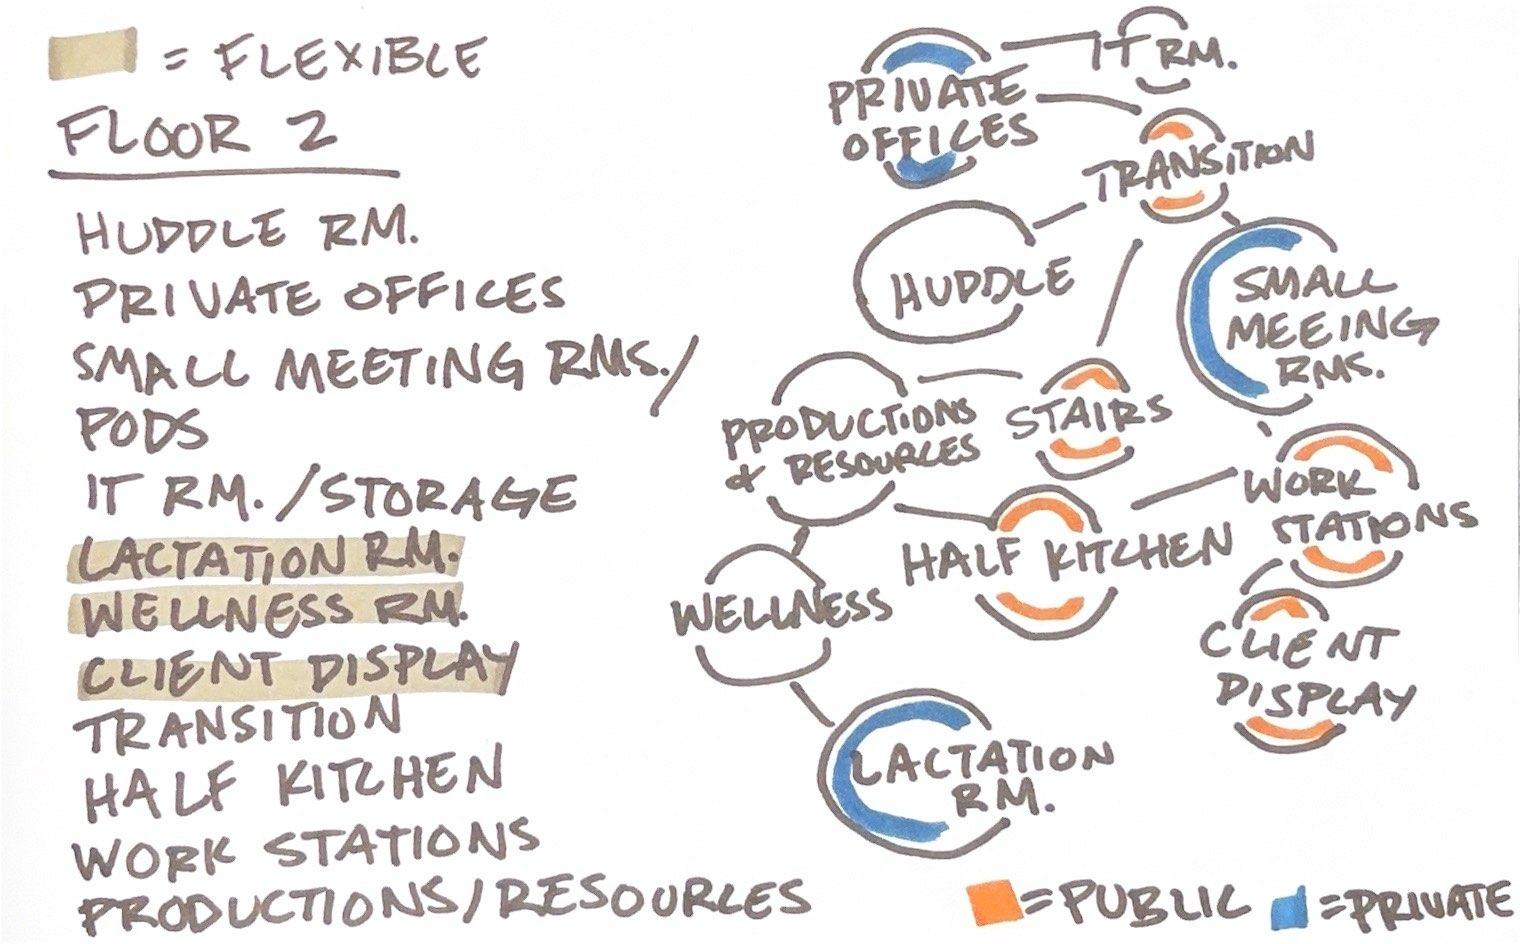 = FLEXIBLE
FLOOR 2
HUDDLE RM.
PRIVATE OFFICES
SMALL MEETING RMS./
PODS
IT RM./STORAGE
LACTATION RM.
WELLNESS RM.
CLIENT DISPLAY
TRANSITION
HALF KITCHEN
WORK STATIONS
PRODUCTIONS/RESOURCES
IT RM.
PRIVATE
OFFICES
TRANSITION
HUDDLE
SMALL
MEEING
RMS.
PRODUCTIONS
& RESOURCES
STAIRS
WORK
STATIONS
HALF KITCHEN
WELLNESS
CLIENT
DISPLAY
LACTATION
RM.
=PUBLIC
=PRIVATE